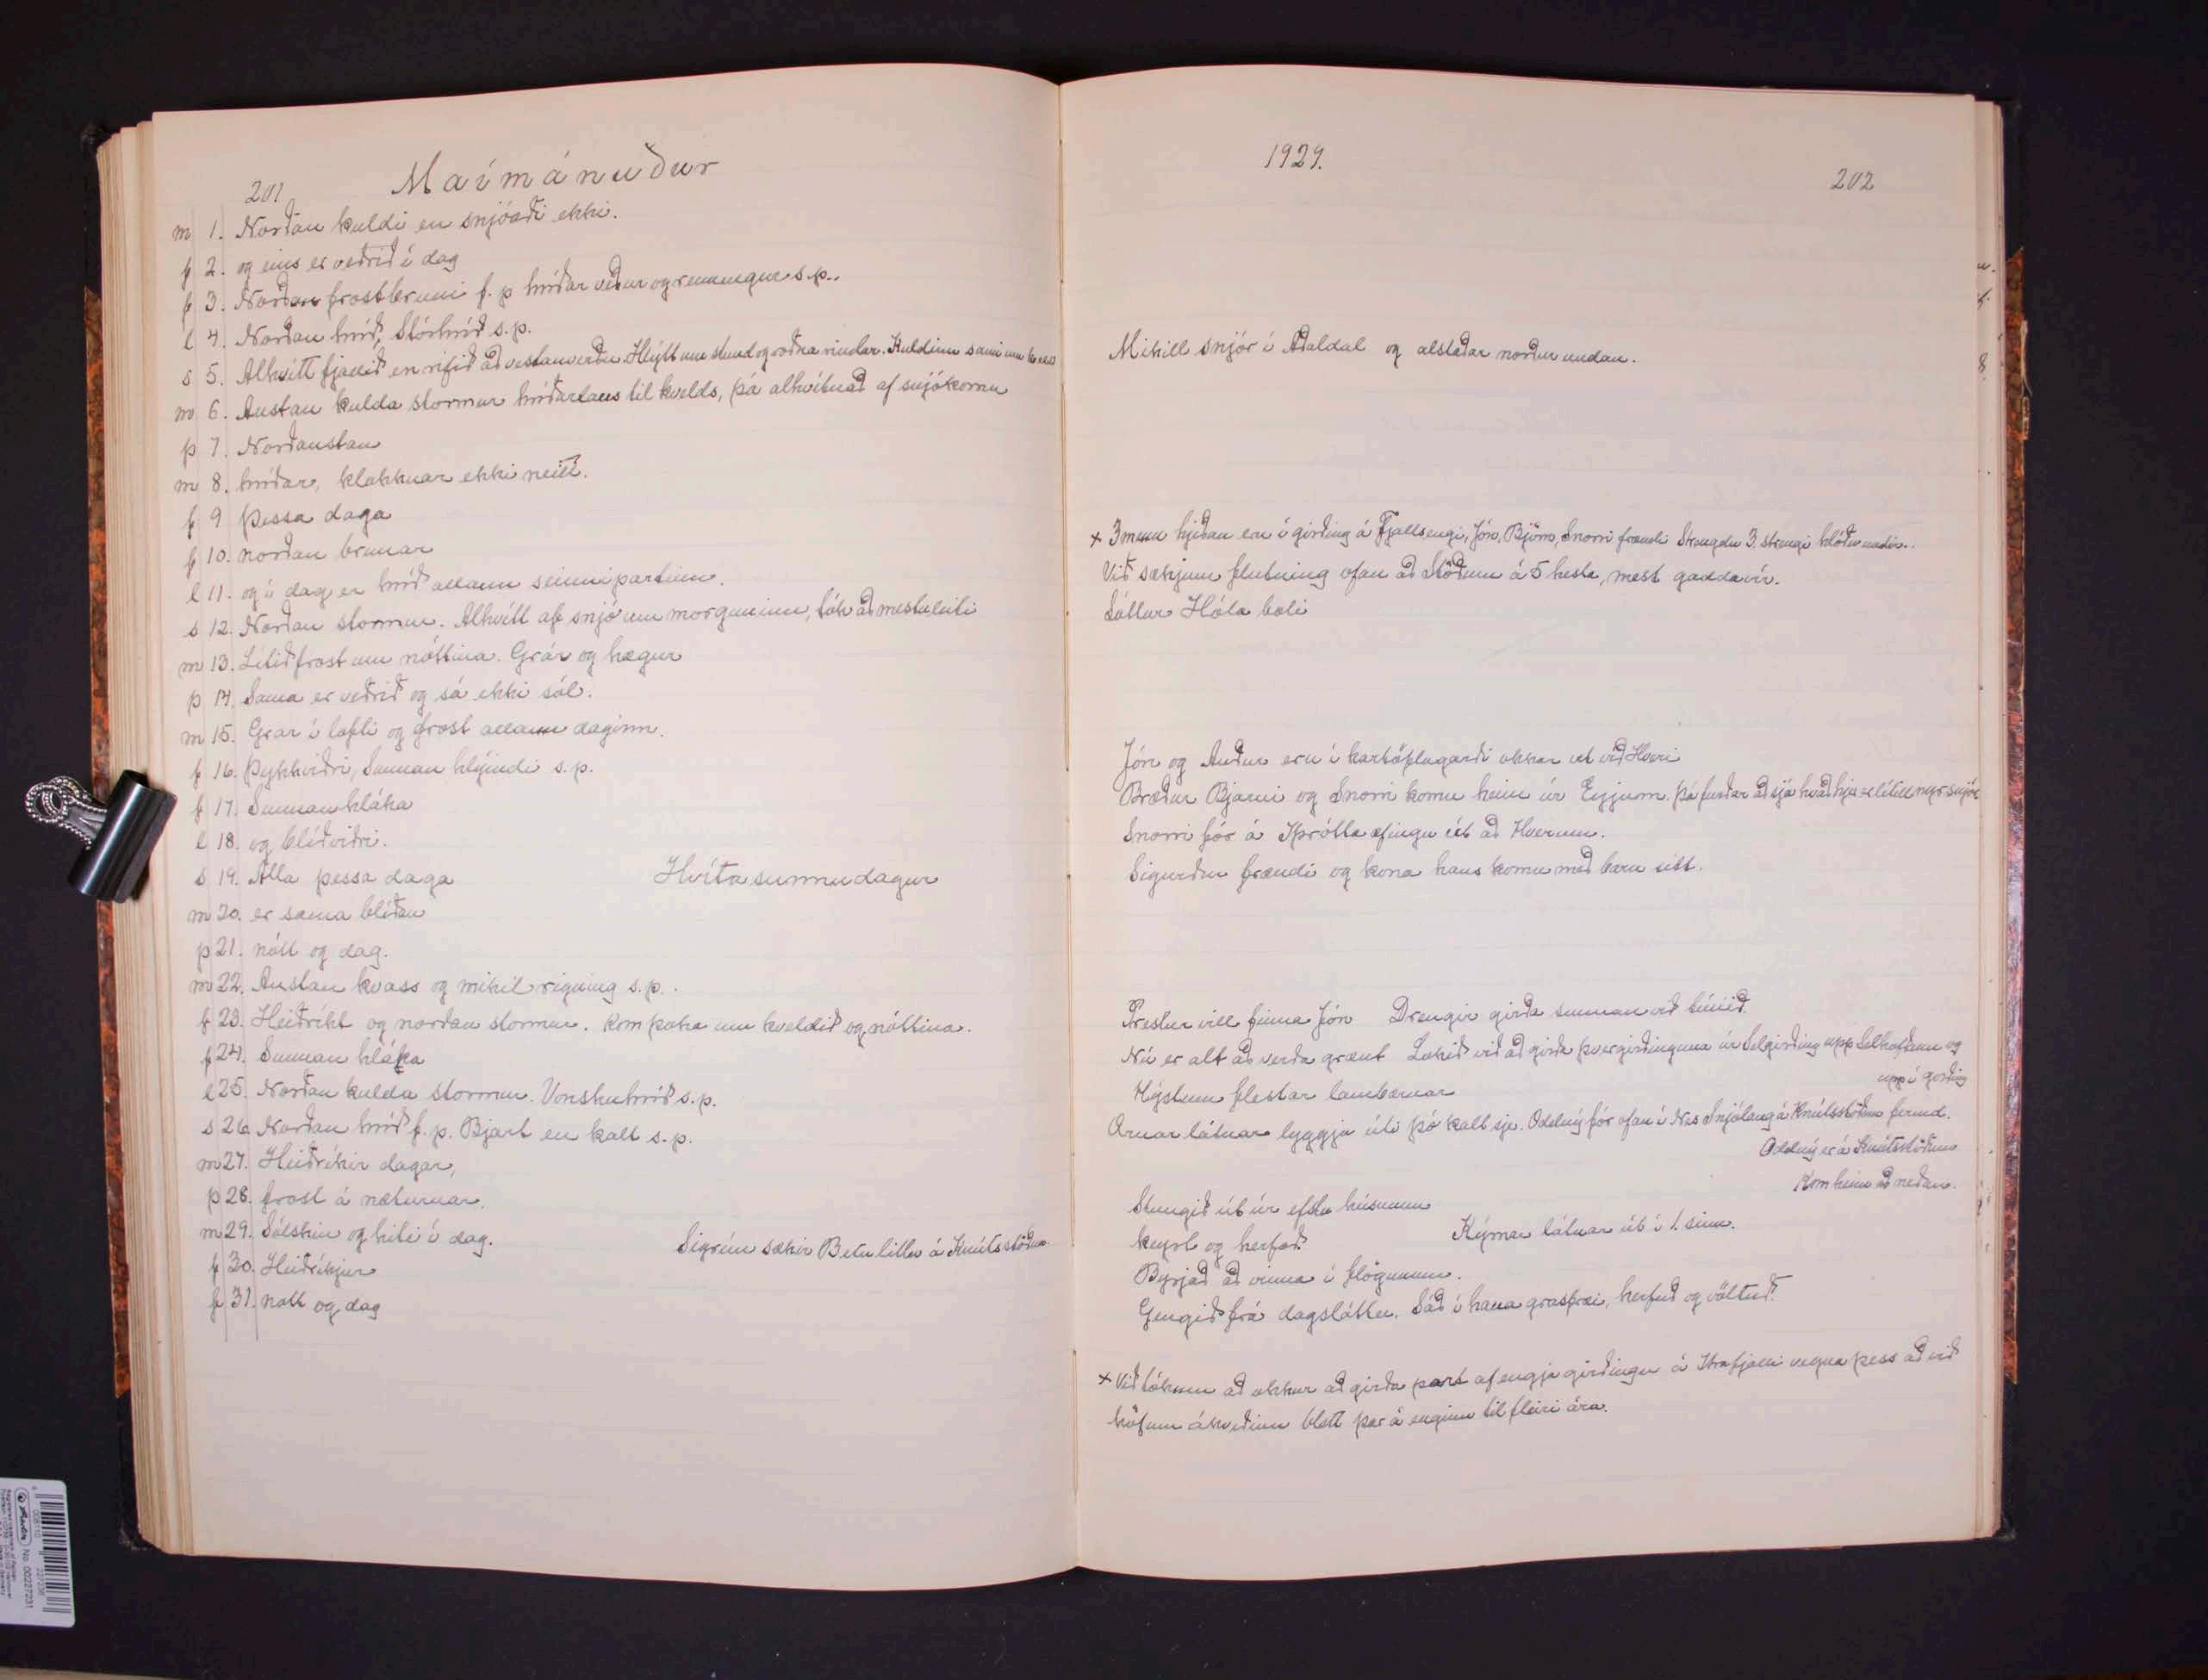 201 Maímánuður
m 1. Norðan kuldi en snjóaði ekki.
f 2. og eins er veðrið í dag
f 3. Norðan frostbruni f. p hríðar veður og renningur s.p..
l 4. Norðan hríð, Stórhríð s.p.
s 5. Alhvítt fjallið en rifið að vestanverðu. Hlýtt um stund og roðna rindar. Kuldinn sami um
m 6. Austan kulda stormur hríðarlaus til kvelds, þá alhvítnað af snjókomu
þ 7. Norðaustan
m 8. hríðar, klökknar ekki neitt.
f 9 þessa daga
f 10. norðan brunar
l 11. og í dag er hríð allann seinnipartinn.
s 12. Norðan stormur. Alhvítt af snjó um morguninn, tók að mestu leiti
m 13. Lítið frost um nóttina. Grár og hægur
þ 14. Sama er veðrið og sá ekki sól.
m 15. Grár í lofti og frost allann daginn.
f 16. Þykkviðri, Sunnan hlýindi s.p.
f 17. Sunnan hláka
l 18. og blíðviðri.
s 19. Alla þessa daga Hvítasunnudagur
m 20. er sama blíðan
þ 21. nótt og dag.
m 22. Austan kvass og mikil rigning s.p..
f 23. Heiðríkt og norðan stormur. Kom þoka um kveldið og nóttina.
f 24. Sunnan hláka
l 25. Norðan kulda stormur. Vonskuhríð s.p.
s 26. Norðan hríð f.p. Bjart en kalt s.p.
m 27. Heiðríkir dagar,
þ 28. frost á næturnar.
m 29. Sólskin og hiti í dag. Sigrún sækir Betu litlu á Knútsstöðum
f 30. Heiðríkjur
f 31. nótt og dag
1929.
202
Mikill snjór í Aðaldal og alstaðar norður undan.
x 3 menn hjeðan eru í girðing á Fjallsengi, Jón, Björn, Snorri frændi Strengdu 3. strengi hlóðu undir..
Við sækjum flutning ofan að Stöðum á 5 hesta, mest gaddavír.
Sóttur Hóla boli
Jón og Auður eru í kartöflugarði okkar út við Hveri
Bræður Bjarni og Snorri komu heim úr Eyjum. Þá furðar að sjá hvað hjer er lítill nýr snjór
Snorri fór á Íþrótta æfingu út að Hverum.
Sigurður frændi og kona hans komu með barn sitt.
Prestur vill finna Jón Drengir girða sunnan við túnið.
Nú er alt að verða grænt Lokið við að girða þvergirðinguna úr Selgirðing upp Selhöfðann og
upp í girðing
Hýstum flestar lambærnar
Ærnar látnar lyggja úti þó kalt sje. Oddný fór ofan í Nes Snjólaug á Knútsstöðum fermd.
Oddný er á Knútsstöðum
Kom heim að neðan.
Stungið út úr efstu húsunum
keyrt og herfað Kýrnar látnar út í 1. sinn.
Byrjað að vinna í flögunum.
Gengið frá dagsláttu. Sáð í hana grasfræi, herfuð og völtuð.
x Við tókum að okkur að girða part af engja girðingu á Hrafjalli vegna þess að við
höfum ákveðinn blett þar á enginu til fleiri ára.